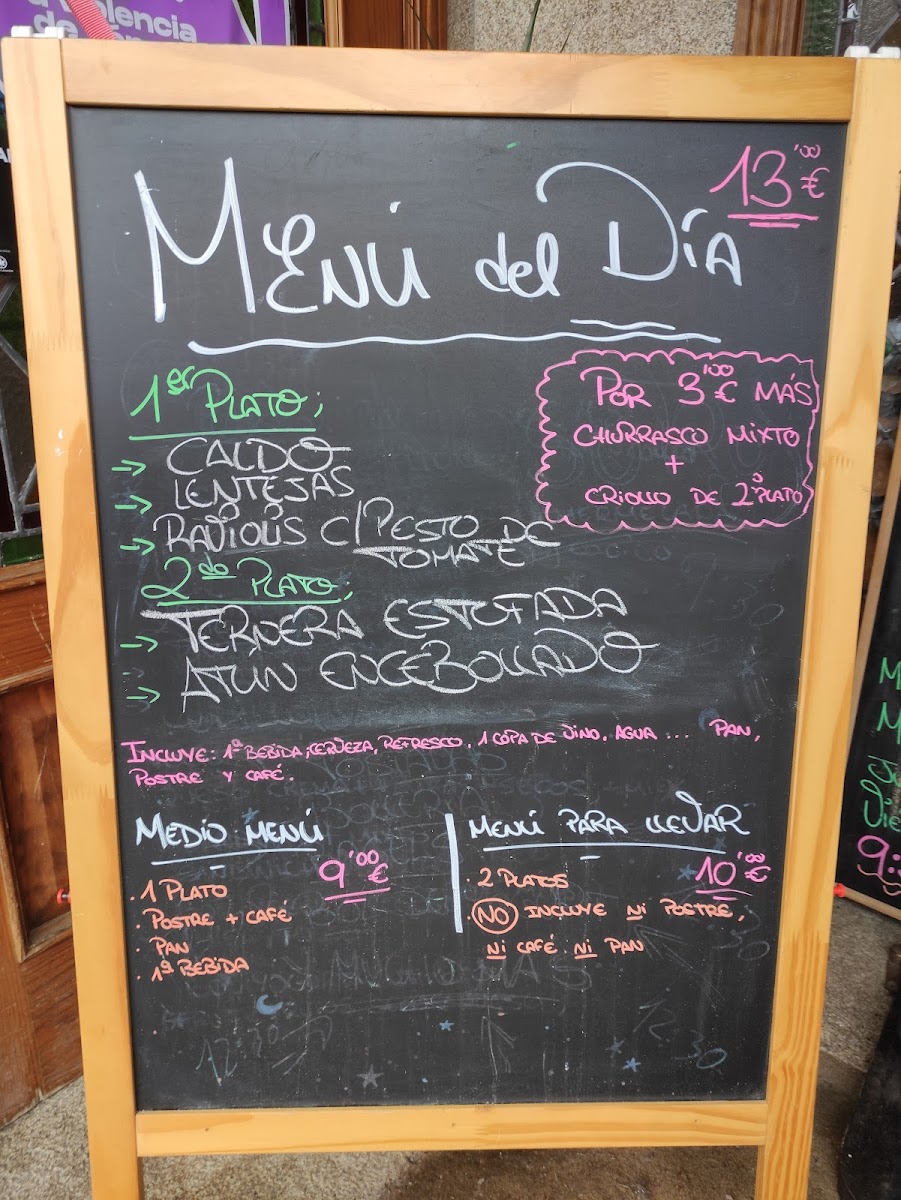 violencia
de
13'00€
Menú del Día
1er Plato;
→ Caldo
→ Lentejas
→ Raviolis c/Pesto de
Tomate
Por 3'00€ más
Churrasco mixto
+
Criollo de 2º plato
2do Plato;
→ Ternera estofada
→ Atun encebollado
Incluye: 1ª Bebida, cerveza, refresco, 1 copa de vino, agua ... Pan,
Postre y café.
Medio menú
9'00€
· 1 Plato
· Postre + café
· Pan
· 1ª Bebida
Menú para llevar
10'00€
· 2 Platos
· NO incluye ni postre,
ni café ni pan
12.30